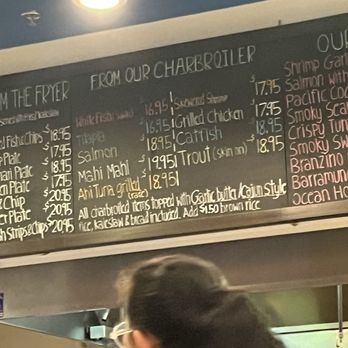 M THE FRYER
Fish & Chips $18.95
Plate $17.95
ari Plate $18.95
en Plate $17.95
& Chip $20.95
er Plate $20.95
sh Strips & Chips $20.95
FROM OUR CHARBROILER
White Fish 16.95
Tilapia 16.95
Salmon 18.95
Mahi Mahi 19.95
Ahi Tuna grilled (rare) $18.95
Skewered Shrimp $17.95
Grilled Chicken 17.95
Catfish 18.95
Trout (skin on) $18.95
All charbroiled items topped with Garlic butter/Cajun Style
rice, kaleslaw & bread included. Add $1.50 brown rice
OU
Shrimp Garl
Salmon with
Pacific Co
Smoky Sca
Crispy Tun
Smoky Sw
Branzino
Barramun
Ocean Ho